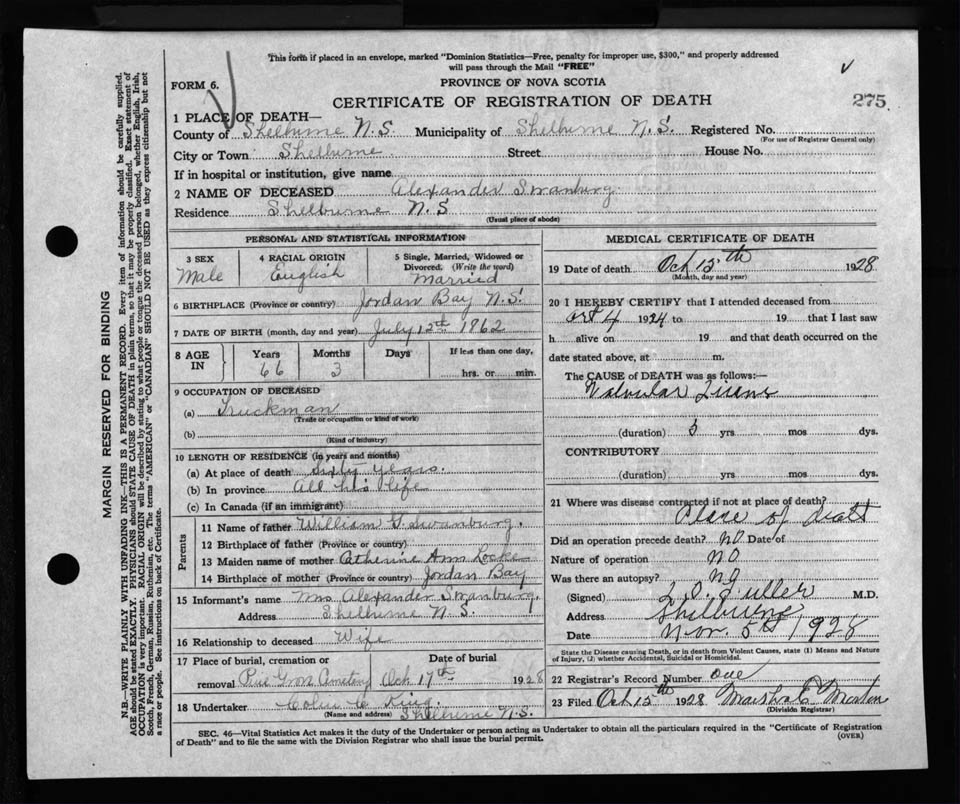 This form if placed in an envelope, marked "Dominion Statistics—Free, penalty for improper use, $300," and properly addressed
will pass through the Mail "FREE"
FORM 6.
PROVINCE OF NOVA SCOTIA
CERTIFICATE OF REGISTRATION OF DEATH
275
1 PLACE OF DEATH—
County of Shelburne N.S. Municipality of Shelburne N.S. Registered No.
(For use of Registrar General only)
City or Town Shelburne Street House No.
If in hospital or institution, give name
2 NAME OF DECEASED Alexander Swanburg
Residence Shelburne N.S
(Usual place of abode)
PERSONAL AND STATISTICAL INFORMATION
3 SEX
Male
4 RACIAL ORIGIN
English
5 Single, Married, Widowed or
Divorced. (Write the word)
Married
6 BIRTHPLACE (Province or country) Jordan Bay N.S.
7 DATE OF BIRTH (month, day and year) July 12th 1862
8 AGE IN
Years Months Days If less than one day,
66 3 hrs. or min.
9 OCCUPATION OF DECEASED
(a) Truckman
(Trade or occupation or kind of work)
(b)
(Kind of Industry)
10 LENGTH OF RESIDENCE (in years and months)
(a) At place of death sixty years.
(b) In province All his life
(c) In Canada (if an immigrant)
Parents
11 Name of father William G. Swanburg.
12 Birthplace of father (Province or country)
13 Maiden name of mother Catherine Ann Locke
14 Birthplace of mother (Province or country) Jordan Bay
15 Informant's name Mrs Alexander Swanburg.
Address Shelburne N.S.
16 Relationship to deceased Wife
17 Place of burial, cremation or Date of burial
removal Pine Grove Cemetery Oct 17th 1928
18 Undertaker Colin C King.
(Name and address) Shelburne N.S.
MEDICAL CERTIFICATE OF DEATH
19 Date of death Oct 15th 1928
(Month, day and year)
20 I HEREBY CERTIFY that I attended deceased from
Oct 4 1924 to 19 that I last saw
h alive on 19 and that death occurred on the
date stated above, at m.
The CAUSE of DEATH was as follows:—
Valvular Disease
(duration) 3 yrs mos dys.
CONTRIBUTORY
(duration) yrs mos dys.
21 Where was disease contracted if not at place of death?
Place of death
Did an operation precede death? NO Date of
Nature of operation NO
Was there an autopsy? NO
(Signed) Fuller M.D.
Address Shelburne
Date Nov. 5th 1928
State the Disease causing Death, or in death from Violent Causes, state (1) Means and Nature
of Injury, (2) whether Accidental, Suicidal or Homicidal.
22 Registrar's Record Number one
23 Filed Oct 15th 1928
(Division Registrar)
SEC. 46—Vital Statistics Act makes it the duty of the Undertaker or person acting as Undertaker to obtain all the particulars required in the "Certificate of Registration
of Death" and to file the same with the Division Registrar who shall issue the burial permit.
(OVER)
MARGIN RESERVED FOR BINDING
N.B.—WRITE PLAINLY WITH UNFADING INK—THIS IS A PERMANENT RECORD. Every item of information should be carefully supplied.
AGE should be stated EXACTLY. PHYSICIANS should STATE CAUSE OF DEATH in plain terms, so that it may be properly classified. Exact statement of
OCCUPATION is very important. RACIAL ORIGIN will be described by stating to what people or tongue the deceased person belonged, whether English, Irish,
Scotch, French, German, Russian, Ruthenian, etc. The terms "AMERICAN" or "CANADIAN" SHOULD NOT BE USED as they express citizenship but not
a race or people. See instructions on back of Certificate.